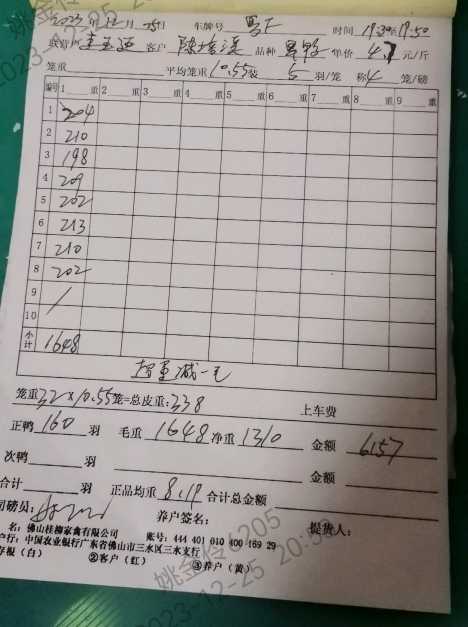 2023年12月25日 车牌号 时间 19:30至19:50
客户 品种 单价 4.7 元/斤
笼重 平均笼重 10.55 装 5 羽/笼 称 4 笼/磅
编号 1 重 2 重 3 重 4 重 5 重 6 重 7 重 8 重 9 重
1 204
2 210
3 198
4 209
5 202
6 213
7 210
8 202
9 /
10
小计 1648
超重减一毛
笼重 32×10.55 笼=总皮重: 338 上车费
正鸭 160 羽 毛重 1648 净重 1310 金额 6157
次鸭 羽 金额
合计 羽 正品均重 8.19 合计总金额
司磅员: 养户签名: 提货人:
名: 佛山桂柳家禽有限公司 账号: 444 401 010 400 169 29
户行: 中国农业银行广东省佛山市三水区三水支行
存根(白) ②客户(红) ③养户(黄)
姚金伶6205
2023-12-25 20:3